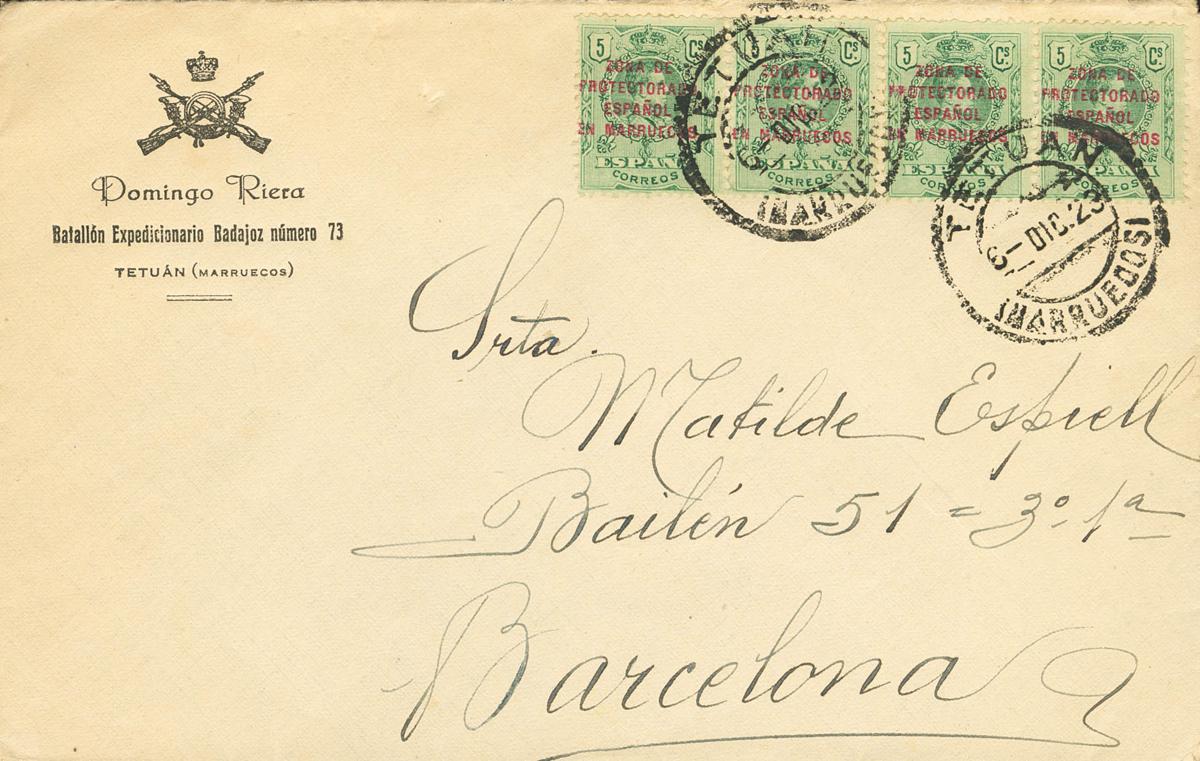 Domingo Riera
Batallón Expedicionario Badajoz número 73
TETUÁN (MARRUECOS)
5 Cs
ZONA DE
PROTECTORADO
ESPAÑOL
EN MARRUECOS
ESPAÑA
CORREOS
5 Cs
ZONA DE
PROTECTORADO
ESPAÑOL
EN MARRUECOS
ESPAÑA
CORREOS
5 Cs
ZONA DE
PROTECTORADO
ESPAÑOL
EN MARRUECOS
ESPAÑA
CORREOS
5 Cs
ZONA DE
PROTECTORADO
ESPAÑOL
EN MARRUECOS
ESPAÑA
CORREOS
TETUAN
(MARRUECOS)
TETUAN
DIC. 23
(MARRUECOS)
Srta.
Matilde Espiell
Bailén 51 = 3º 1ª
Barcelona